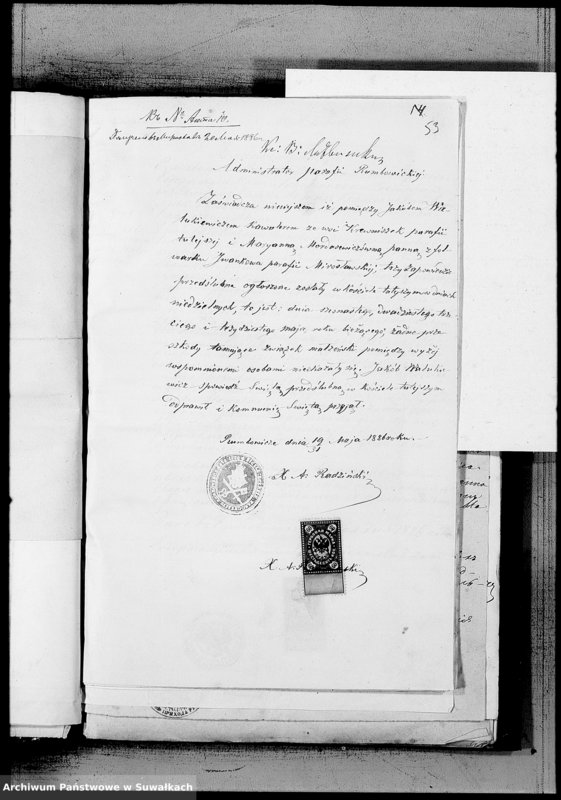 Къ № Акта 10.
14
53
Administrator parafii Rumbowickiej
Zaświadcza niniejszem iż pomiędzy Jakóbem Wa-
tukiewiczem kawalerem ze wsi Krewniszek parafii
tutejszej i Maryanną panną z fol-
warku Iwankowa parafii Mirosławskiej, trzy zapowiedzie
przedślubne ogłoszone zostały w kościele tutejszym w dniach
niedzielnych, to jest: dnia szesnastego, dwudziestego trze-
ciego i trzydziestego maja roku bieżącego, żadne prze-
szkody tamujące związek małżeński pomiędzy wyżej
wspomnionemi osobami nieokazały się. Jakób Watukie-
wicz spowiedź Świętą przedślubną w kościele tutejszym
odprawił i Kommunię Świętą przyjął.
Rumbowicze dnia 19/31 Maja 1886 roku.
X A. Radziński
X. A.
Archiwum Państwowe w Suwałkach